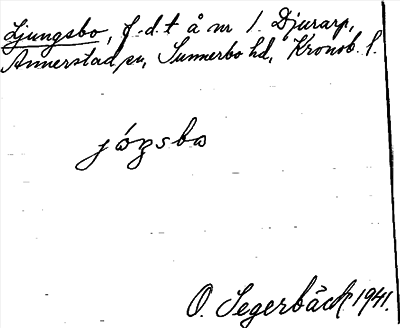 Ljungsbo, f.d.t å nr 1. Djurarp,
Annerstad sn, Sunnerbo hd, Kronob. l.
józsbo
O. Segerbäck 1941.